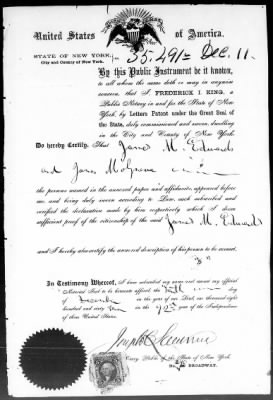 United States of America.
STATE OF NEW YORK,
City and County of New York.
35.491 Dec. 11.
By this Public Instrument be it known,
to all whom the same doth or may in anywise
concern, that I, FREDERICK I. KING, a
Public Notary in and for the State of New
York, by Letters Patent under the Great Seal of
the State, duly commissioned and sworn, dwelling
in the City and County of New York
Do hereby Certify, That James M. Edwards
and James
the persons named in the annexed paper and affidavits, appeared before
me, and being duly sworn according to Law, each subscribed and
verified the declaration made by him respectively which I deem
sufficient proof of the citizenship of the said James M. Edwards
and I hereby also certify the annexed description of his person to be correct.
In Testimony Whereof, I have subscribed my name and caused my official
Notarial Seal to be hereunto affixed, the day
of in the year of our Lord, one thousand eight
hundred and sixty in the 92 year of the Independence
of these United States.
Joseph
Notary Public of the State of New York.
BROADWAY.